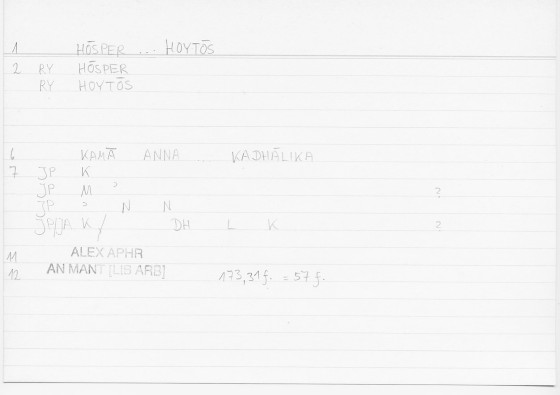 1 HŌSPER ... HOYTŌS
2 RY HŌSPER
RY HOYTŌS
6 KAMĀ ANNA ... KADHĀLIKA
7 JP K
JP M ᵓ ?
JP ᵓ N N
JP/JA K / DH L K ?
11 ALEX APHR
12 AN MANT [LIB ARB] 173,31 f. = 57 f.